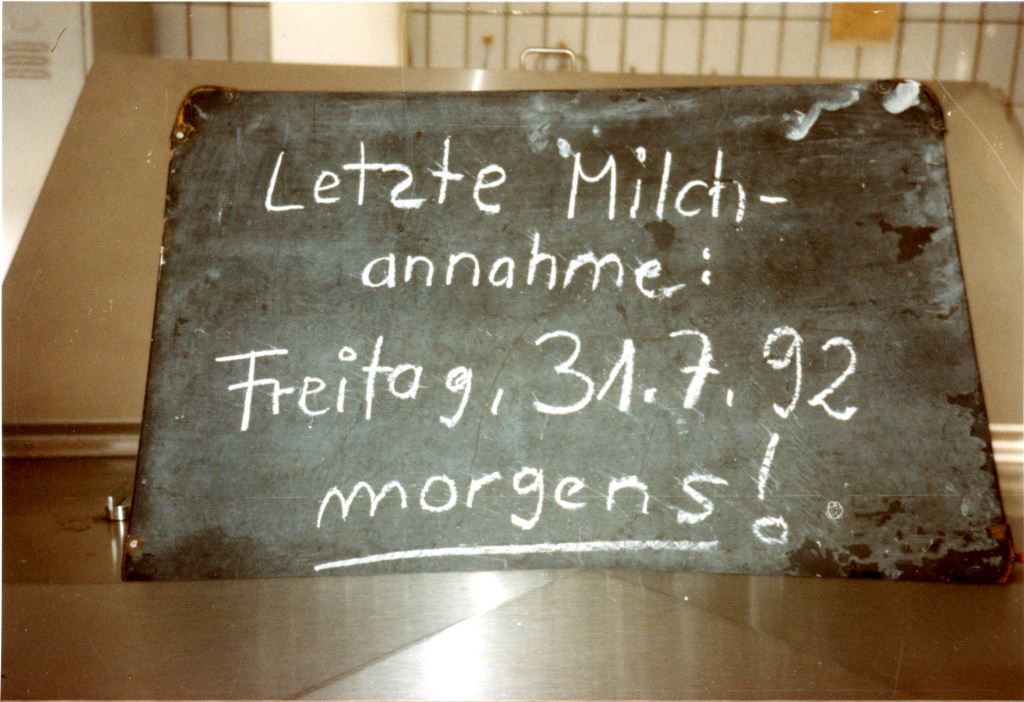 Letzte Milch-
annahme:
Freitag, 31.7.92
morgens!